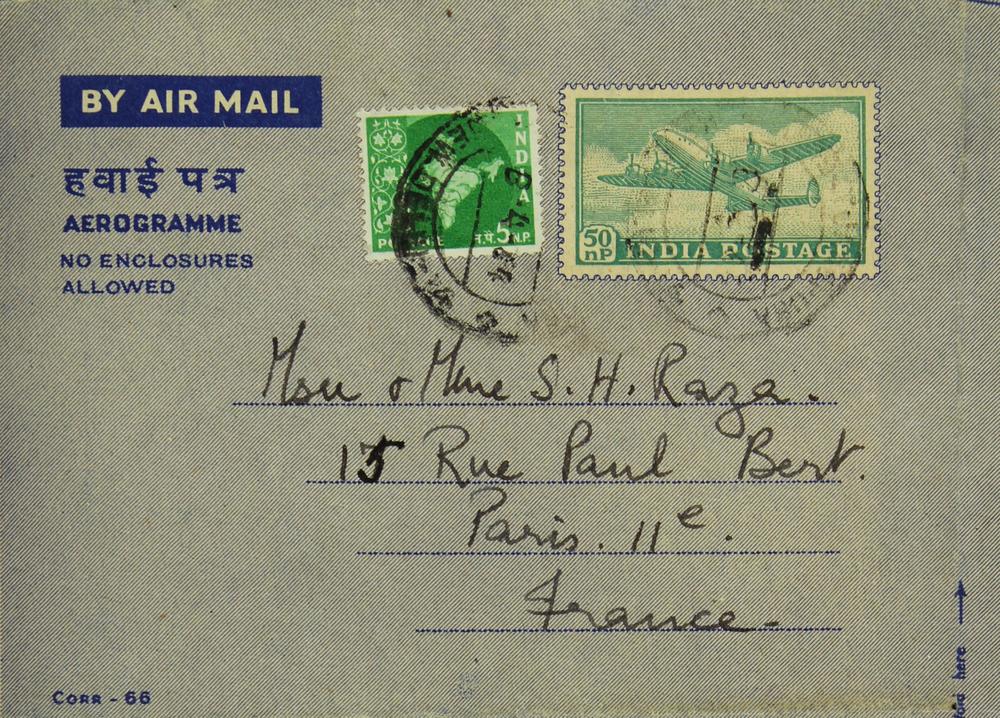 BY AIR MAIL
हवाई पत्र
AEROGRAMME
NO ENCLOSURES
ALLOWED
INDIA
POSTAGE न.पै. 5 N.P.
NEW DELHI
8-4
50
nP INDIA POSTAGE
Msu & Mme S. H. Raza.
15 Rue Paul Bert.
Paris. 11e.
France.
CORR - 66
here